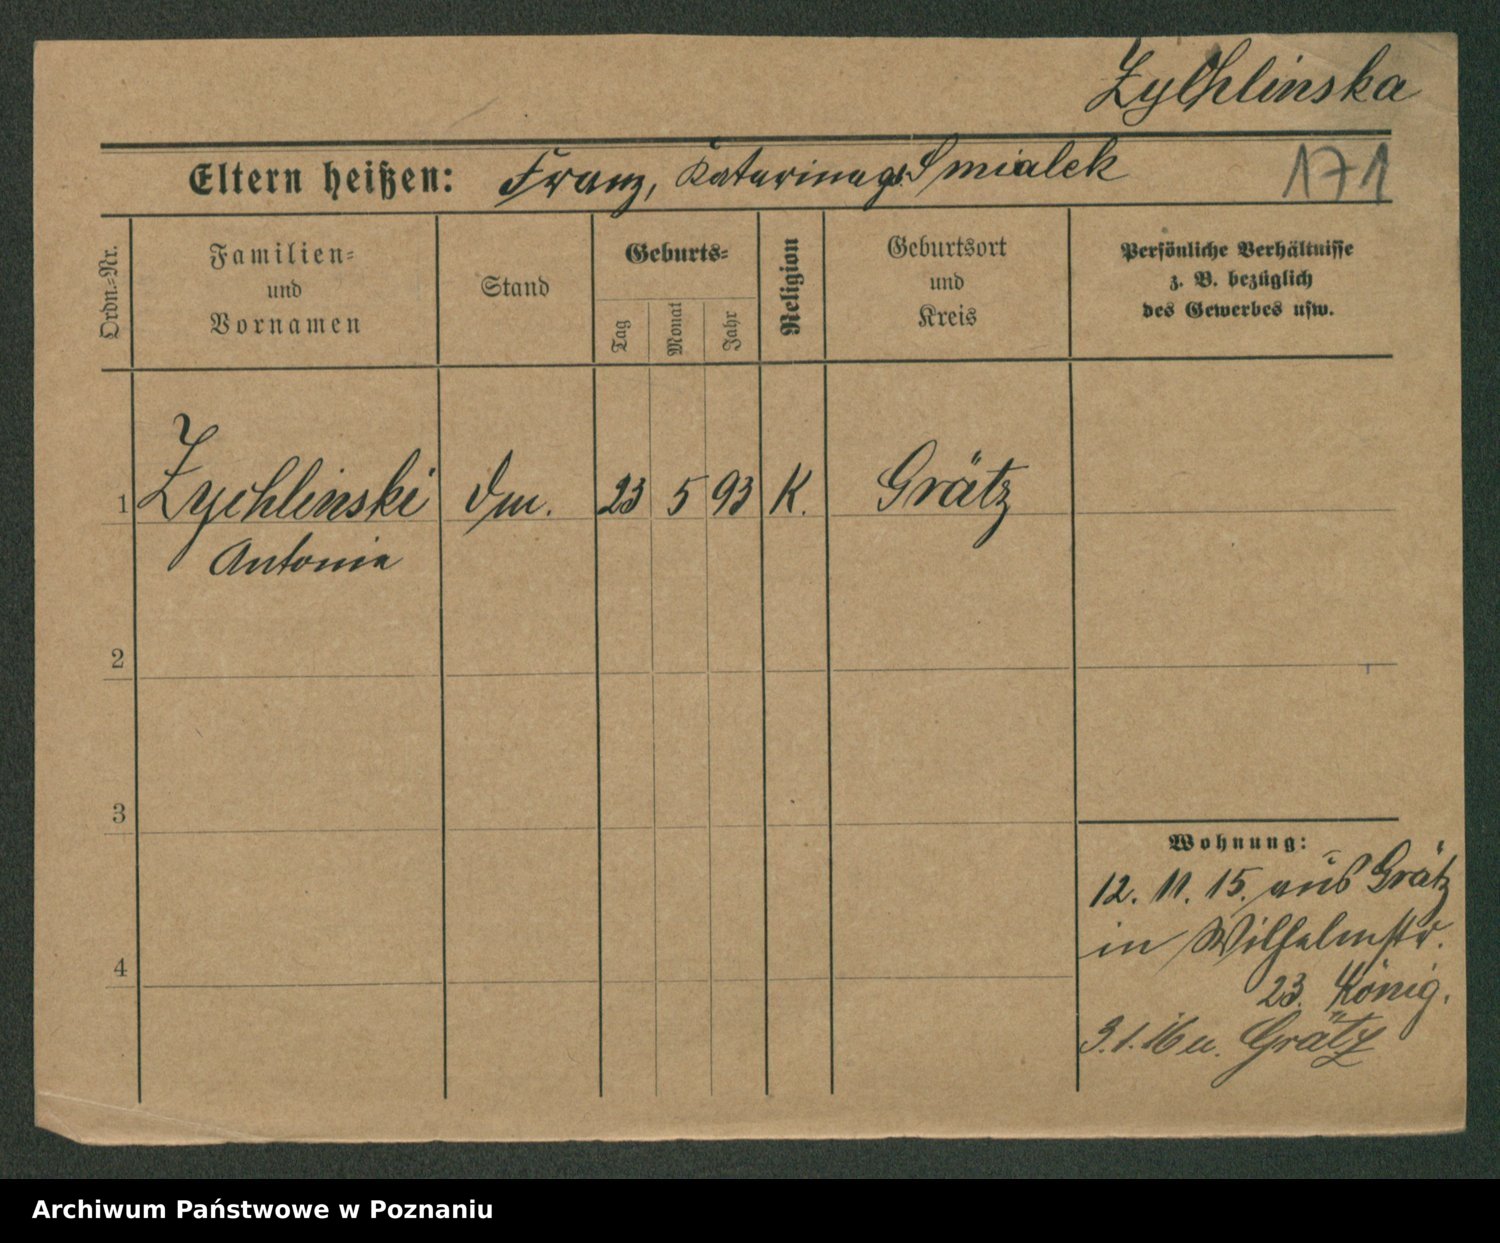 Zychlinska
Eltern heißen: Franz, Katarina g. Smialek
171
Ordn.=Nr.
Familien=
und
Vornamen
Stand
Geburts=
Tag
Monat
Jahr
Religion
Geburtsort
und
Kreis
Persönliche Verhältnisse
z. B. bezüglich
des Gewerbes usw.
1 Zychlinski 23 5 93 K. Grätz
Antonie
2
3
4
Wohnung:
12. 11. 15. aus Grätz
in Wilhelmstr.
23. König.
3.1.16 n. Grätz
Archiwum Państwowe w Poznaniu